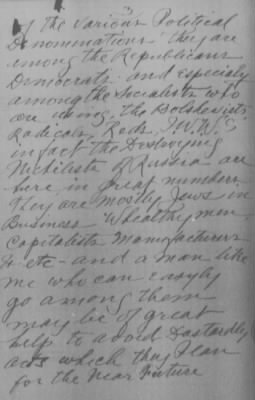 of the various Political
Denominations they are
among the Republicans
Democrats and Especialy
among the Socialists who
are many, the Bolshevists,
Radicals, Reds, I.W.W.'s
in fact the Destroying
Nihilists of Russia are
here in great numbers.
They are mostly Jews in
Business Whealthy men,
Capitalists Manufacturers
& etc - and a man like
me who can easyly
go among them
may be of great
help to avoid Dastardly
acts which they Plan
for the Near Future